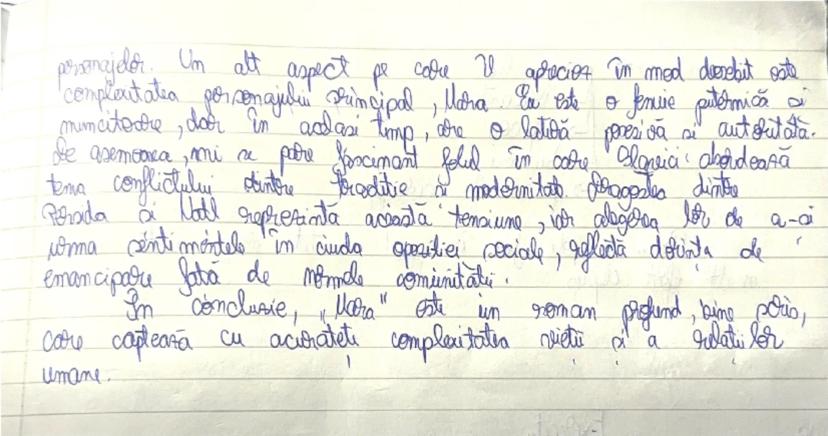 personajelor. Un alt aspect pe care îl apreciez în mod deosebit este
complexitatea personajului principal, Mara. Ea este o femeie puternică și
muncitoare, dar în același timp, are o latură posesivă și autoritară.
De asemenea, mi se pare fascinant felul în care Slavici abordează
tema conflictului dintre tradiție și modernitate. Dragostea dintre
Persida și Națl reprezintă această tensiune, iar alegerea lor de a-și
urma sentimentele în ciuda opoziției sociale, reflectă dorința de
emancipare față de normele comunității.
În concluzie, „Mara" este un roman profund, bine scris,
care captează cu acuratețe complexitatea vieții și a relațiilor
umane.